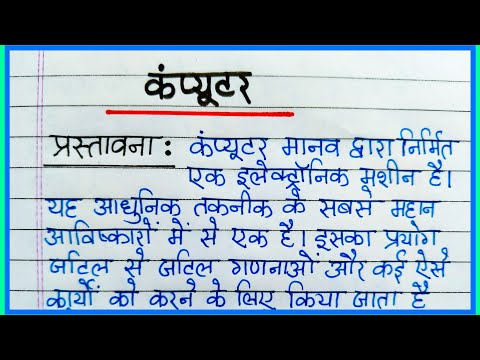 कंप्यूटर
प्रस्तावना : कंप्यूटर मानव द्वारा निर्मित
एक इलेक्ट्रॉनिक मशीन है।
यह आधुनिक तकनीक के सबसे महान
आविष्कारों में से एक है। इसका प्रयोग
जटिल से जटिल गणनाओं और कई ऐसे
कार्यों को करने के लिए किया जाता है